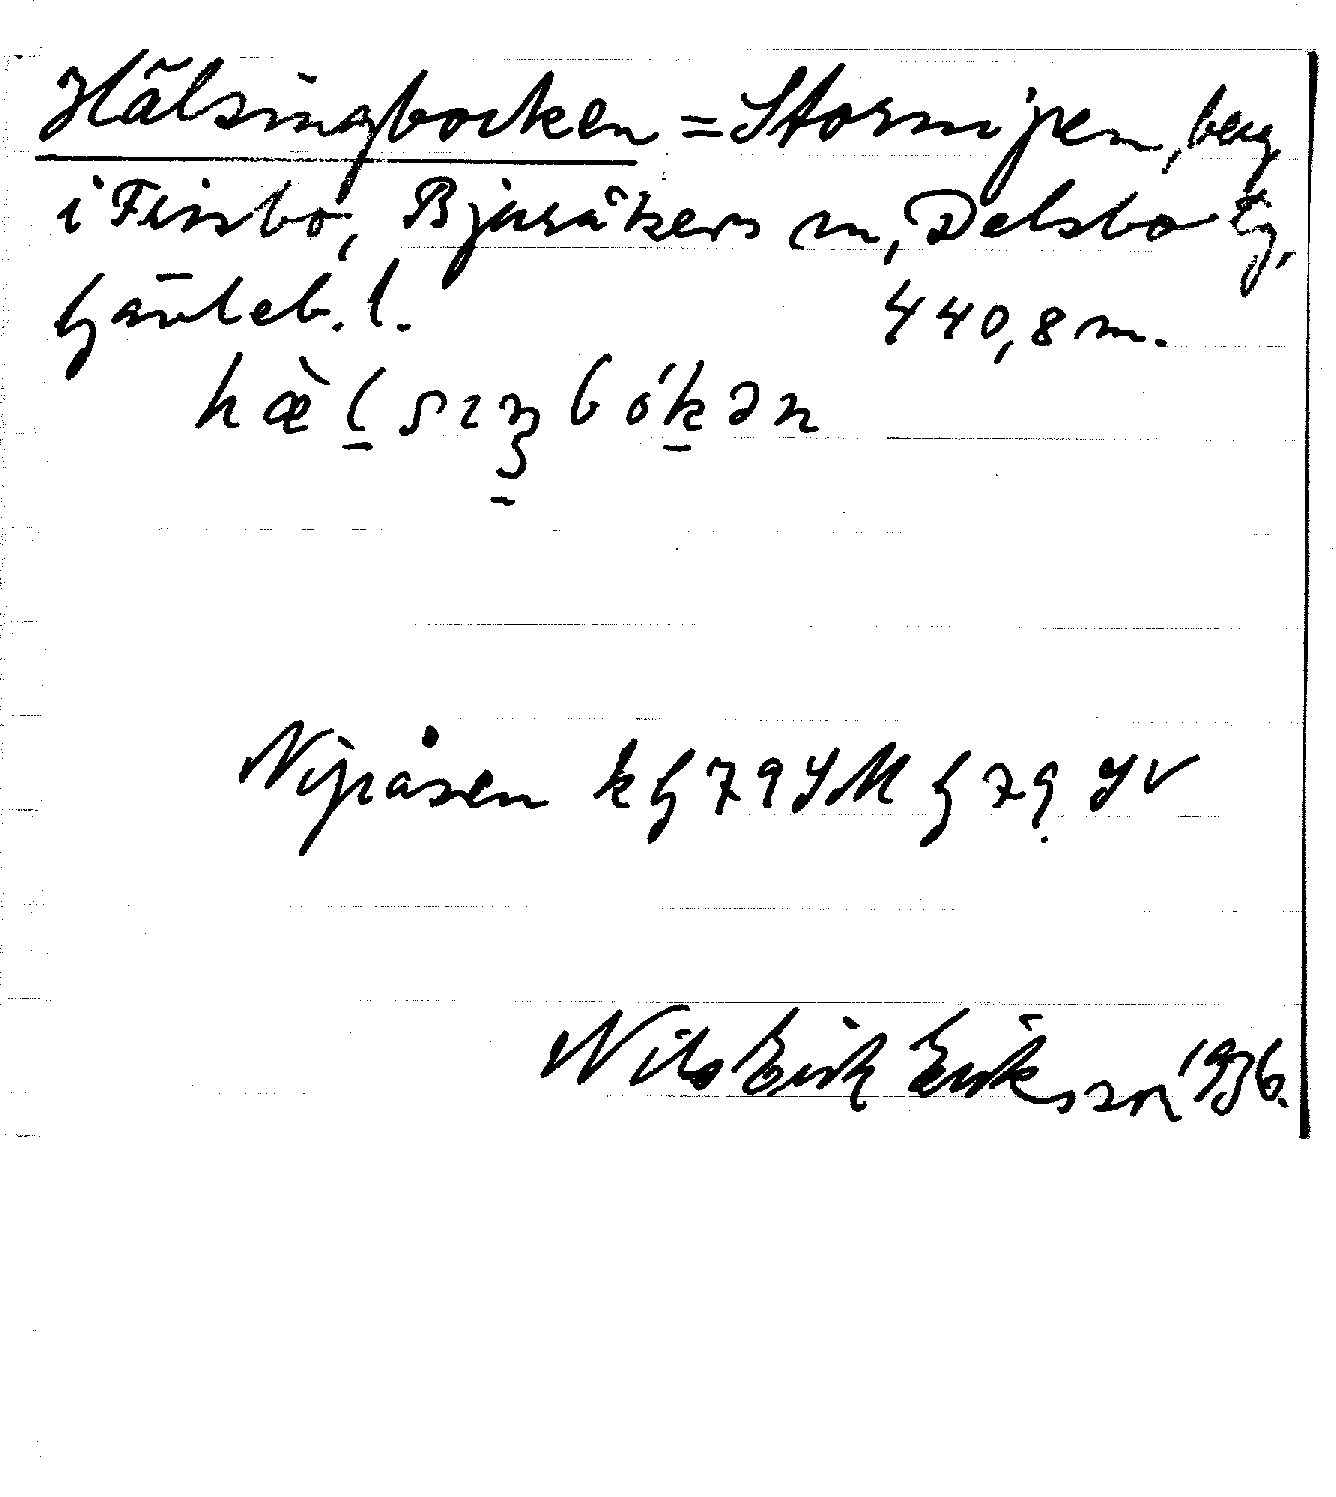 Hälsingbocken = Stornipen, berg
i Finsbo, Bjuråkers sn, Delsbo tg,
Gävleb. l. 440,8 m.
hæ̀lsıŋbókən
Nipåsen kG79SM G79 SV
Nils Erik Eriksson 1936.